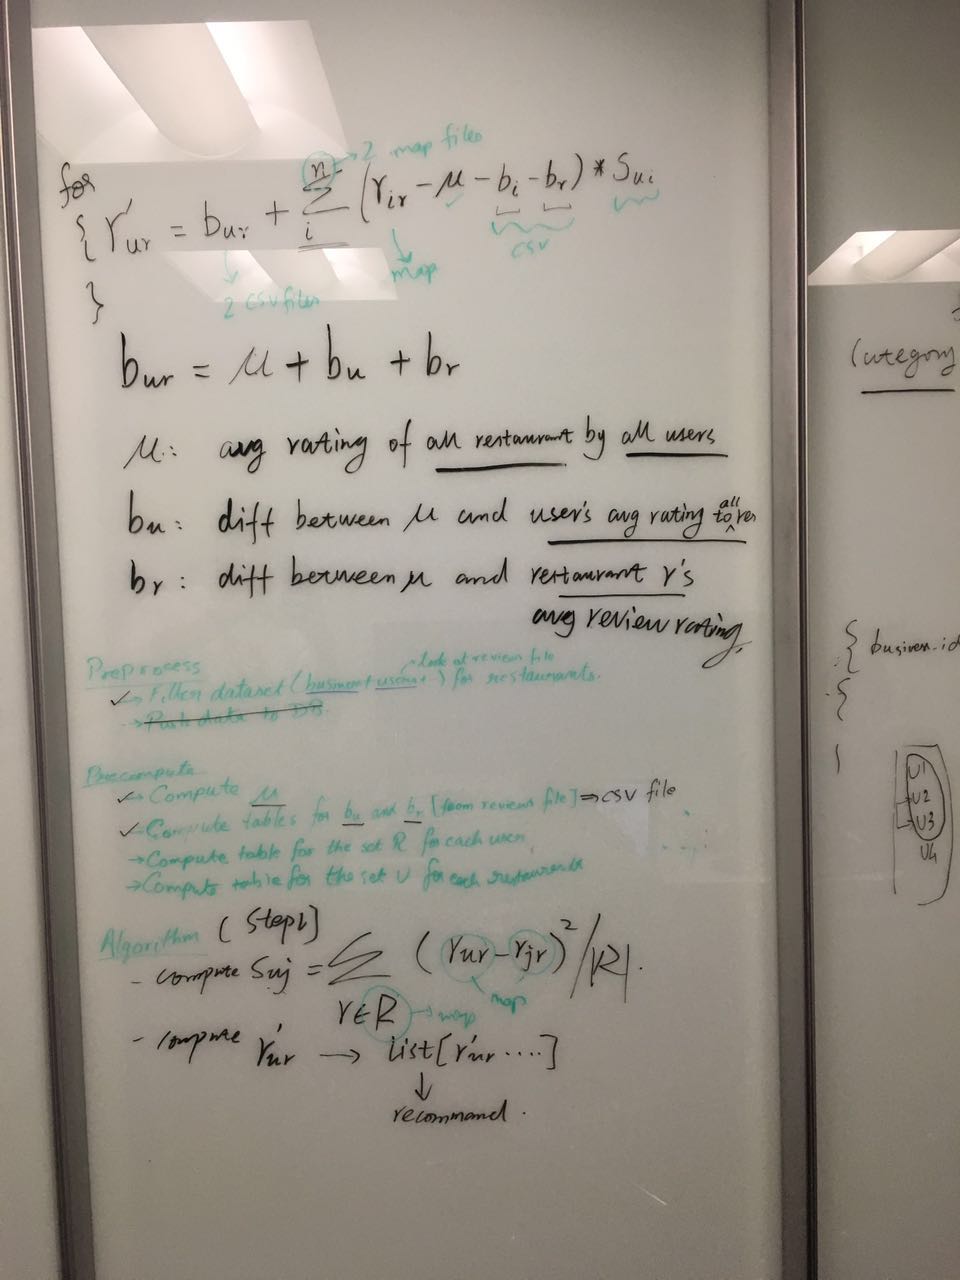 n → 2 map files
for
{ r'ur = bur + Σ i (rir - μ - bi - br) * Sui
map
csv
2 csv files
}
bur = μ + bu + br
μ: avg rating of all restaurant by all users
all
bu: diff between μ and user's avg rating to ^ res
br: diff between μ and restaurant r's
avg review rating.
Preprocess
look at review file
✓→ Filter dataset (business + user + ) for restaurants.
→ Push data to DB.
Precompute
✓→ Compute μ
✓→ Compute tables for bu and br [from reviews file] ⇒ csv file
→ Compute table for the set R for each user
→ Compute table for the set U for each restaurants
Algorithm (Step1]
- compute Suj = Σ r∈R (rur - rjr)² / |R|.
map
→ map
- compute r'ur → list[r'ur ....]
↓
recommand.
(category
{ business-id
{
U1
U2
U3
U4